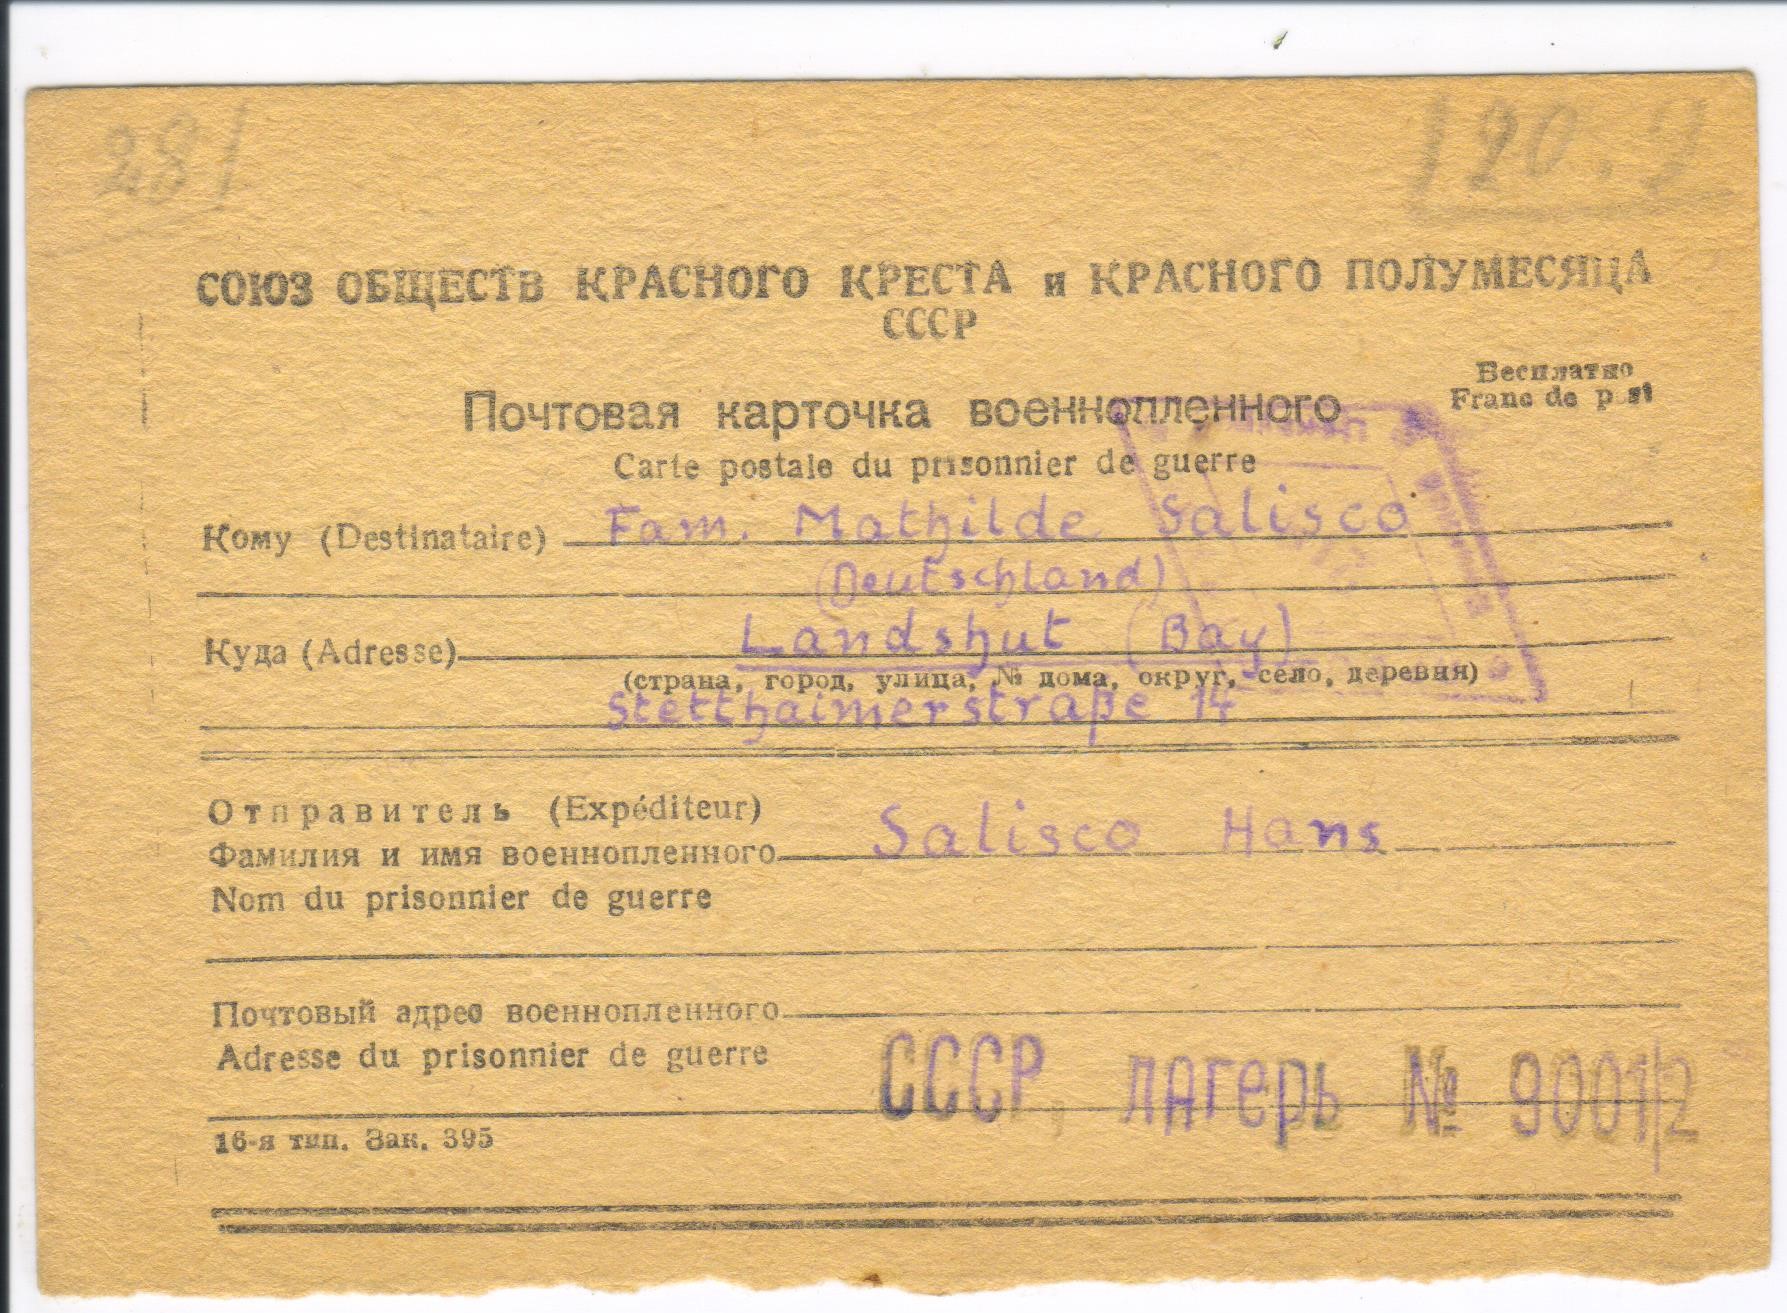 281
СОЮЗ ОБЩЕСТВ КРАСНОГО КРЕСТА и КРАСНОГО ПОЛУМЕСЯЦА
СССР
Бесплатно
Franc de port
Почтовая карточка военнопленного
Carte postale du prisonnier de guerre
Кому (Destinataire) Fam. Mathilde Salisco
(Deutschland)
Куда (Adresse) Landshut (Bay)
(страна, город, улица, № дома, округ, село, деревня)
Stetthaimerstraße 14
Отправитель (Expéditeur)
Фамилия и имя военнопленного Salisco Hans
Nom du prisonnier de guerre
Почтовый адрес военнопленного
Adresse du prisonnier de guerre
СССР, лагерь № 9001/2
16-я тип. Зак. 395